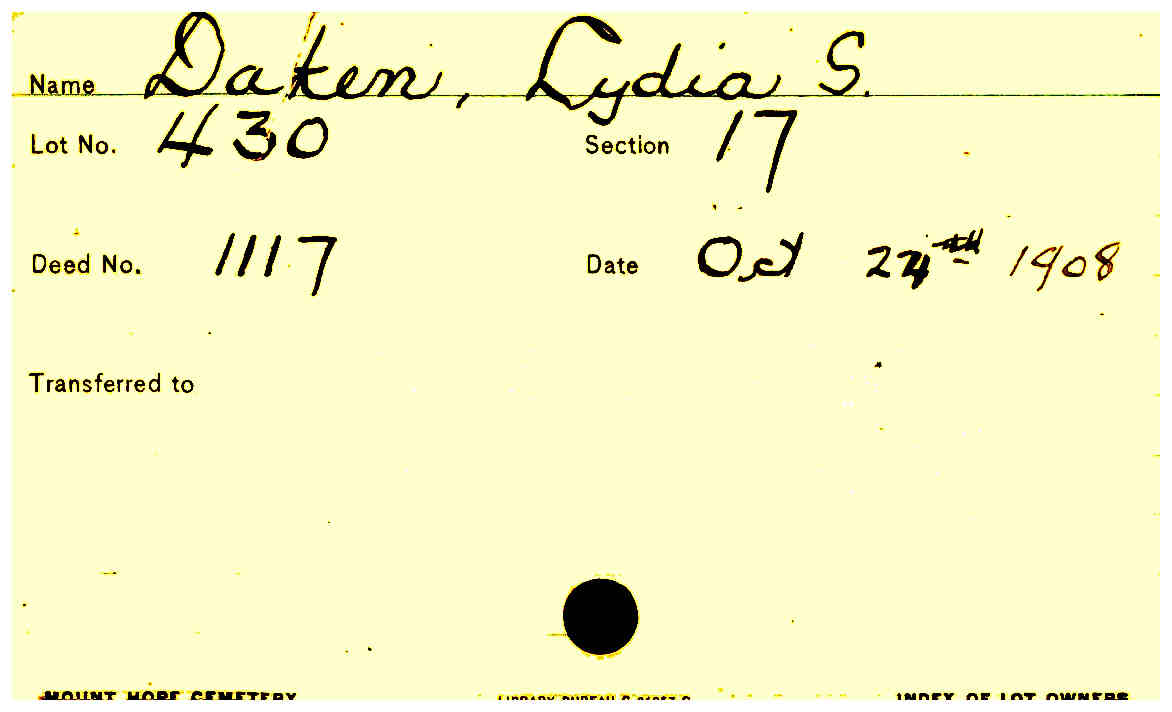 Name Daken, Lydia S.
Lot No. 430 Section 17
Deed No. 1117 Date Oct 24th 1908
Transferred to
MOUNT HOPE CEMETERY LIBRARY BUREAU INDEX OF LOT OWNERS